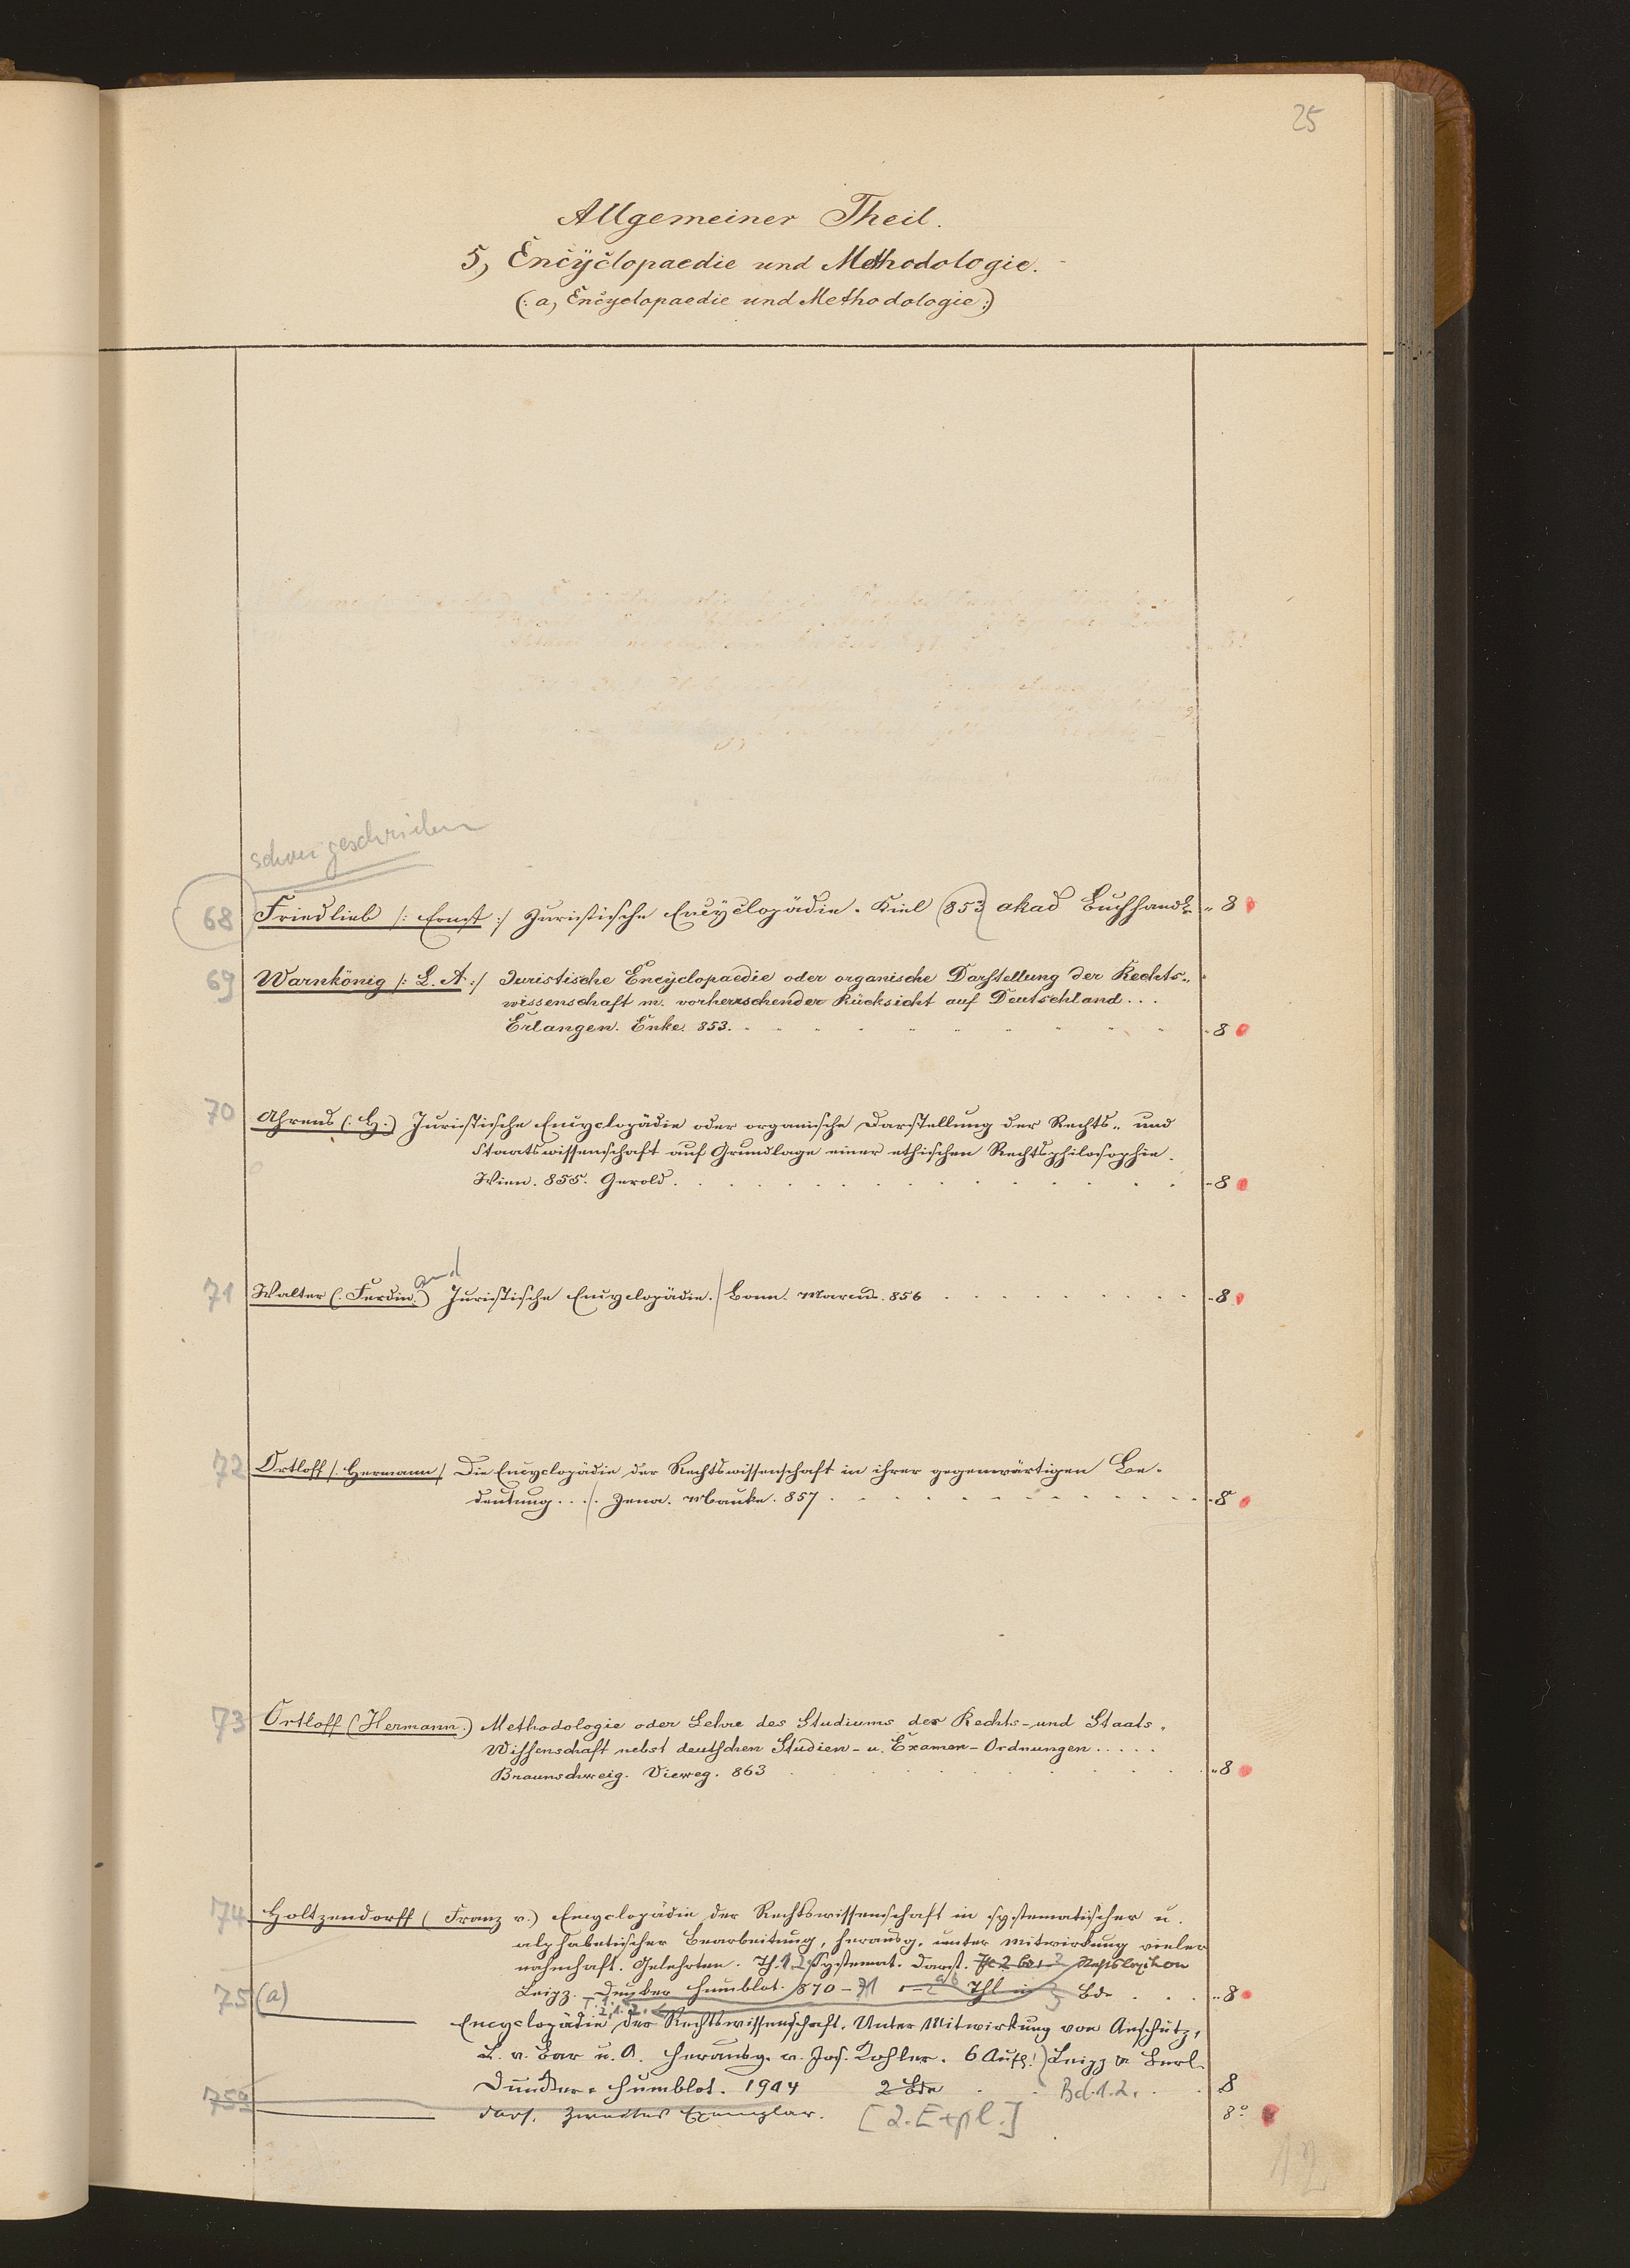 25
Allgemeiner Theil.
5, Encÿclopaedie und Methodologie.
(: a, Encyclopaedie und Methodologie :)
schon geschrieben
68 Friedlieb /: Ernst :/ Juristische Encÿclopädie. Kiel (853) akad Buchhandl. " 8
69 Warnkönig /: L. A :/ Juristische Encÿclopaedie oder organische Darstellung der Rechts-
wissenschaft m. vorherrschender Rücksicht auf Deutschland . . .
Erlangen. Enke. 853. " 8
70 Ahrens (: H.) Juristische Encyclopädie oder organische Darstellung der Rechts- und
Staatswissenschaft auf Grundlage einer ethischen Rechtsphilosophie.
Wien. 855. Gerold. " 8
71 Walter (: Ferdin.) and Juristische Encyclopädie. / Bonn. Marcus. 856 " 8
72 Ortloff /: Hermann / Die Encyclopädie der Rechtswissenschaft in ihrer gegenwärtigen Be-
deutung . . ./. Jena. Mauke. 857 " 8
73 Ortloff (Hermann.) Methodologie oder Lehre des Studiums der Rechts- und Staats-
Wissenschaft nebst deutschen Studien- u. Examen-Ordnungen . . . . .
Braunschweig. Vieweg. 863 " 8
74 Holtzendorff (Franz v.) Encyclopädie der Rechtswissenschaft in systematischer u.
alphabetischer Bearbeitung, herausg. unter Mitwirkung vieler
nahmhaft. Gelehrten. Th. 1. Systemat. Darst. Rechtslexikon
Leipz. Duncker Humblot. 870-71 Thl in Bde . . . " 8
75 (a) Encyclopädie der Rechtswissenschaft. Unter Mitwirkung von Anschütz,
L. v. Bar u. A. herausg. v. Jos. Kohler. 6 Aufl.) Leipz u Berl.
Duncker & Humblot. 1914 2 Bde Bd. 1. 2. 8
75a dass. Zweites Exemplar. [2. Expl.] 8°
12